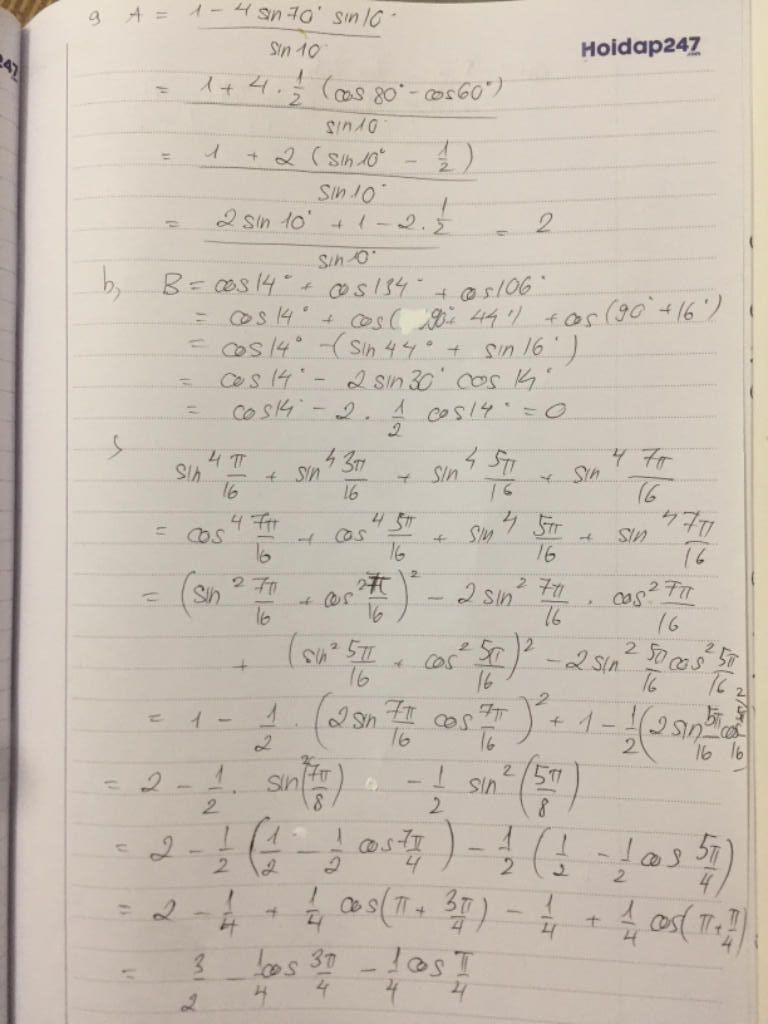 a, A = (1 - 4 sin70° sin10°) / sin10
Hoidap247
.com
247
= (1 + 4 . 1/2 (cos80° - cos60°)) / sin10
= (1 + 2 (sin10° - 1/2)) / sin10°
= (2 sin10° + 1 - 2. 1/2) / sin10° = 2
b, B = cos14° + cos134° + cos106°
= cos14° + cos(90° + 44°) + cos(90° + 16°)
= cos14° - (sin44° + sin16°)
= cos14° - 2sin30° cos14°
= cos14° - 2 . 1/2 cos14° = 0
sin⁴ π/16 + sin⁴ 3π/16 + sin⁴ 5π/16 + sin⁴ 7π/16
= cos⁴ 7π/16 + cos⁴ 5π/16 + sin⁴ 5π/16 + sin⁴ 7π/16
= (sin² 7π/16 + cos² 7π/16)² - 2sin² 7π/16 . cos² 7π/16
+ (sin² 5π/16 + cos² 5π/16)² - 2sin² 5π/16 cos² 5π/16
= 1 - 1/2 . (2sin 7π/16 cos 7π/16)² + 1 - 1/2 (2sin 5π/16 cos 5π/16)²
= 2 - 1/2 . sin²(7π/8) - 1/2 sin²(5π/8)
= 2 - 1/2 (1/2 - 1/2 cos 7π/4) - 1/2 (1/2 - 1/2 cos 5π/4)
= 2 - 1/4 + 1/4 cos(π + 3π/4) - 1/4 + 1/4 cos(π + π/4)
= 3/2 - 1/4 cos 3π/4 - 1/4 cos π/4